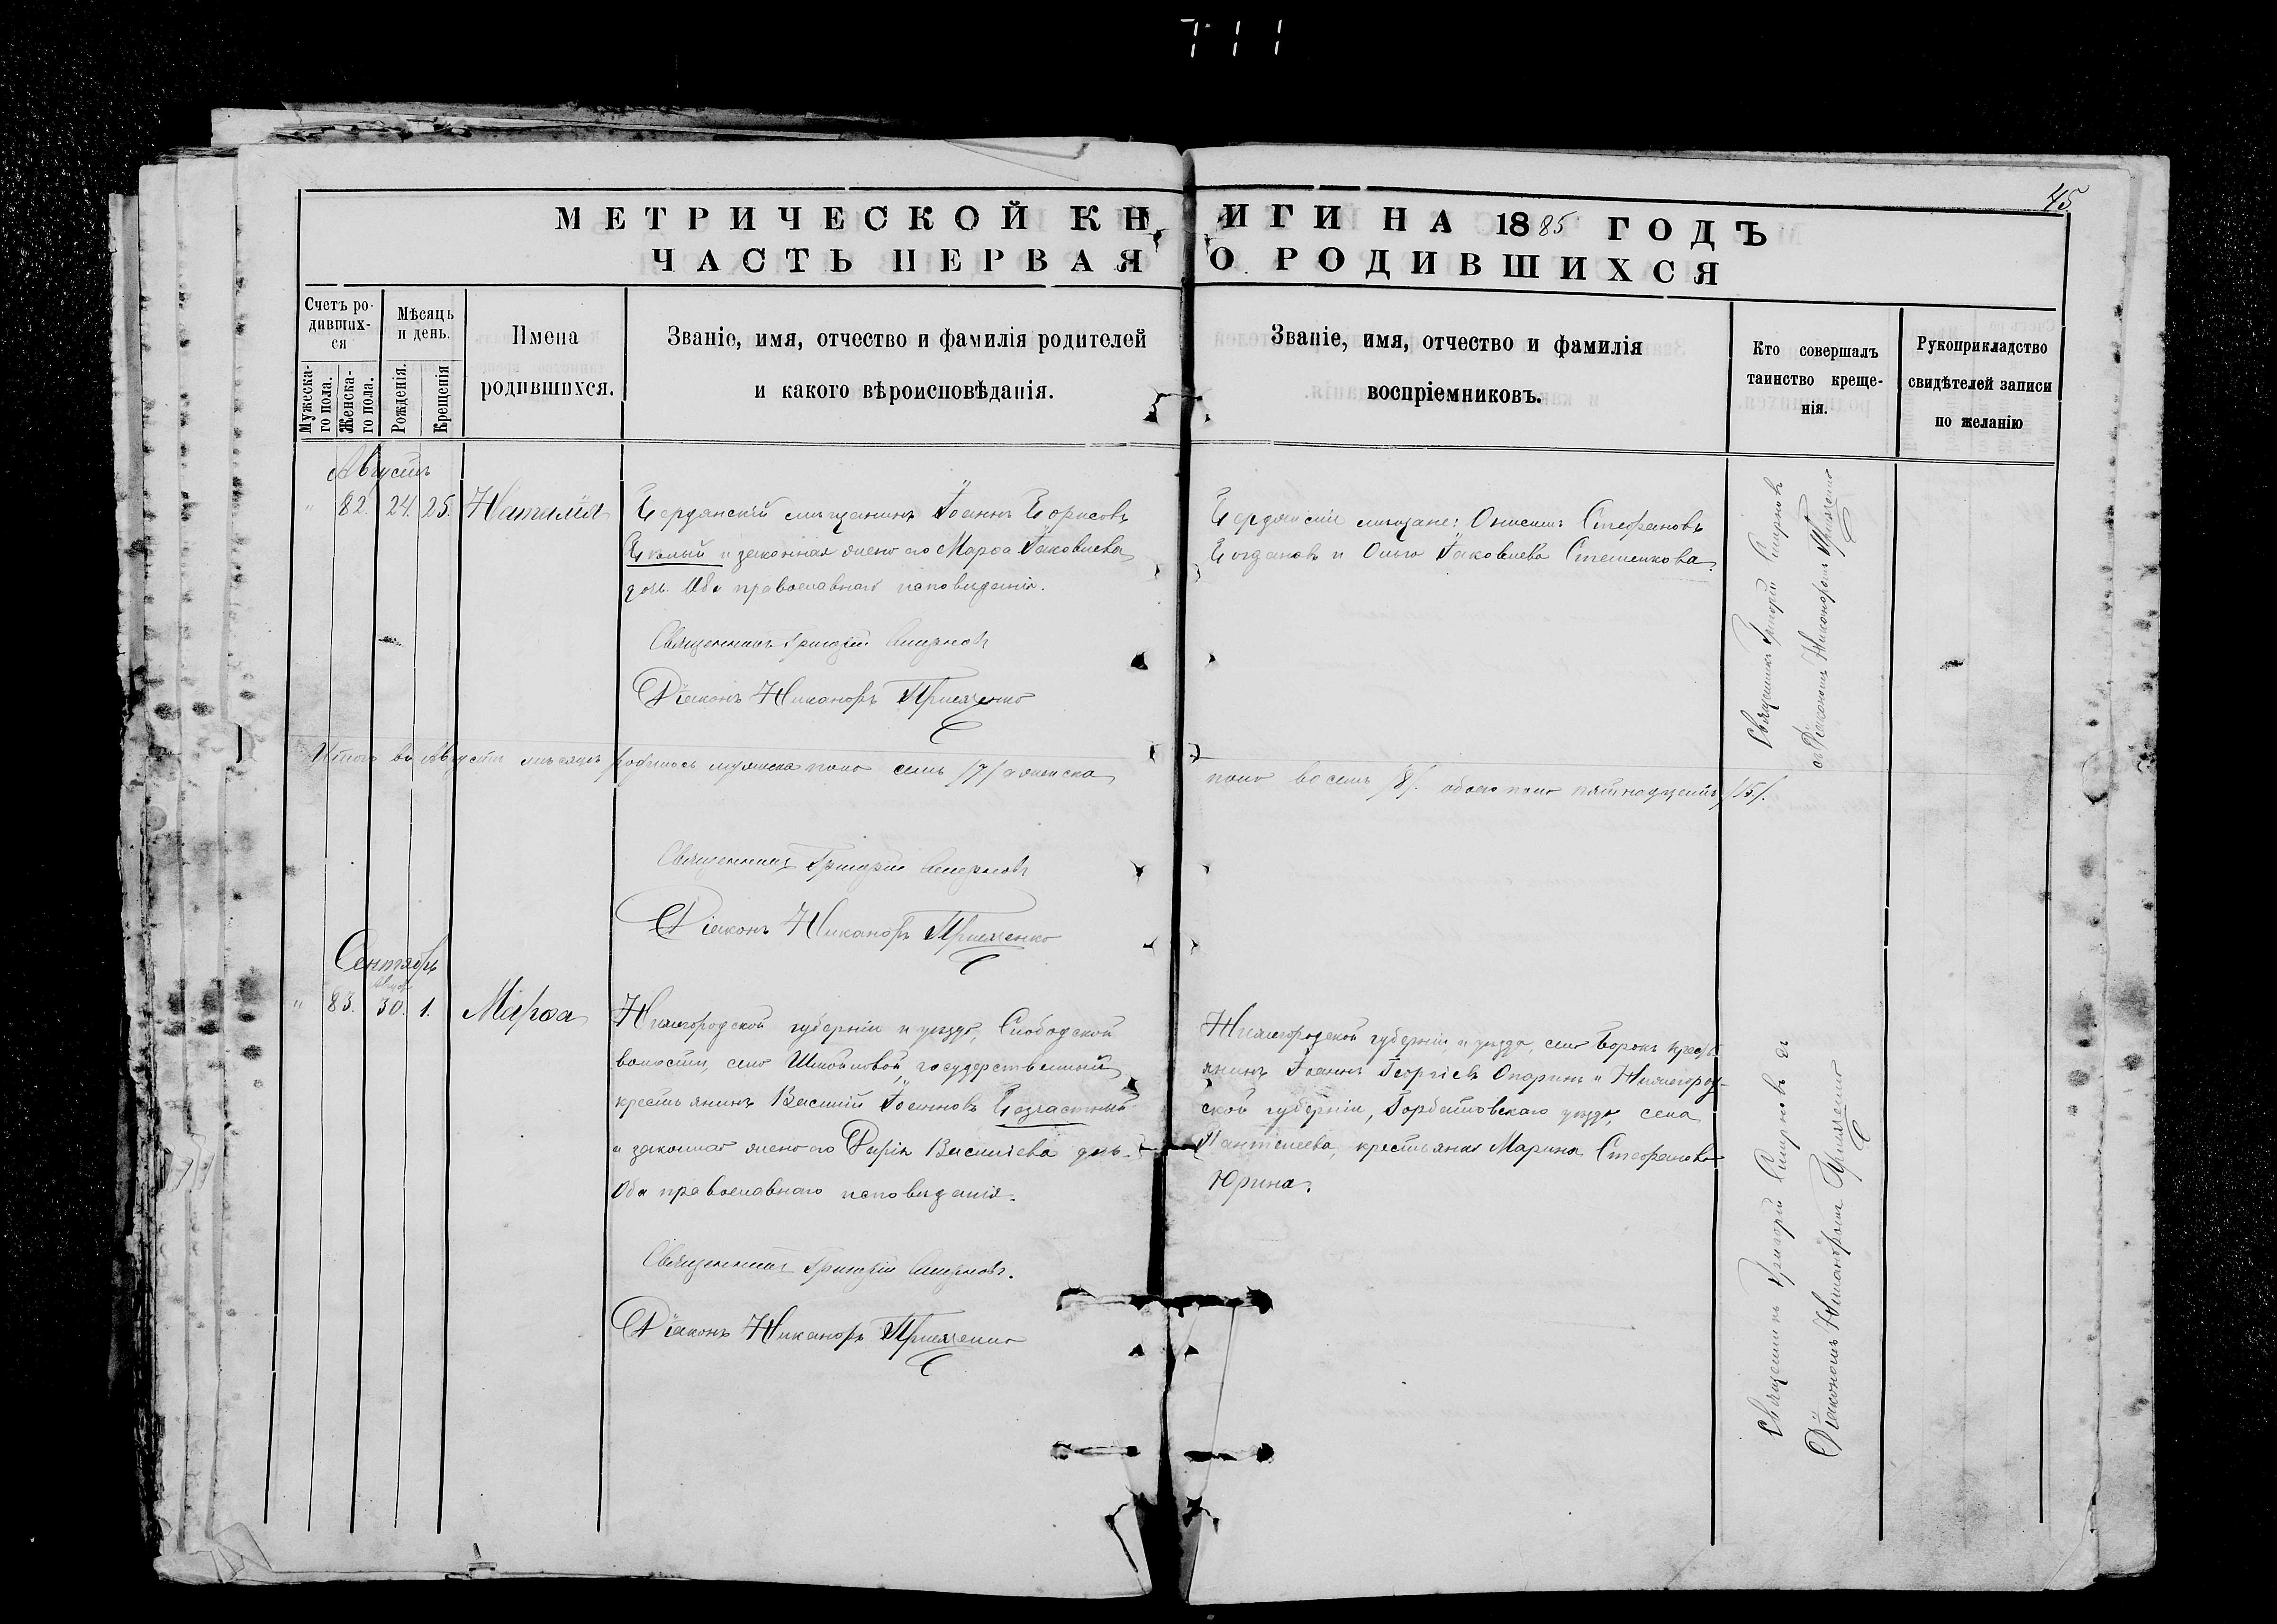 711
45
МЕТРИЧЕСКОЙ КНИГИ НА 1885 ГОДЪ
ЧАСТЬ ПЕРВАЯ О РОДИВШИХСЯ
Счетъ ро-
дивших-
ся
Мужеска-
го пола.
Женска-
го пола.
Мѣсяцъ
и день.
Рожденія.
Крещенія
Имена
родившихся.
Званіе, имя, отчество и фамилія родителей
и какого вѣроисповѣданія.
Званіе, имя, отчество и фамилія
воспріемниковъ.
Кто совершалъ
таинство креще-
нія.
Рукоприкладство
свидѣтелей записи
по желанію
Августъ
" 82. 24. 25. Наталія
Бердянскій мѣщанинъ Іоаннъ Борисовъ
и законная жена его Марѳа Іаковлева
дочь. Оба православнаго исповѣданія.
Священникъ Григорій Смирновъ
Діаконъ Никаноръ
Бердянскіе мѣщане: Онисимъ Стефановъ
Богдановъ и Ольга Іаковлева Стешенкова.
Священникъ Григорій Смирновъ
съ Діакономъ Никаноромъ
Итого въ Августѣ мѣсяцѣ родилось мужеска пола семь /7/ а женска
пола восемь /8/. обоего пола пятнадцать /15/.
Священникъ Григорій Смирновъ
Діаконъ Никаноръ
Сентябрь
Авгус.
" 83. 30. 1. Марѳа
Нижегородской губерніи и уѣзда, Слободской
волости, села государственный
крестьянинъ Василій Іоанновъ Безчастный
и законная жена его Дарія Василіева дочь.
Оба православнаго исповѣданія.
Священникъ Григорій Смирновъ.
Діаконъ Никаноръ
Нижегородской губерніи и уѣзда, села Борокъ крестъ-
янинъ Іоаннъ Георгіевъ Опаринъ и Нижегород-
ской губерніи, Горбатовскаго уѣзда, села
Пантелеева, крестьянка Марина Стефанова
Юрина.
Священникъ Григорій Смирновъ съ
Діакономъ Никаноромъ